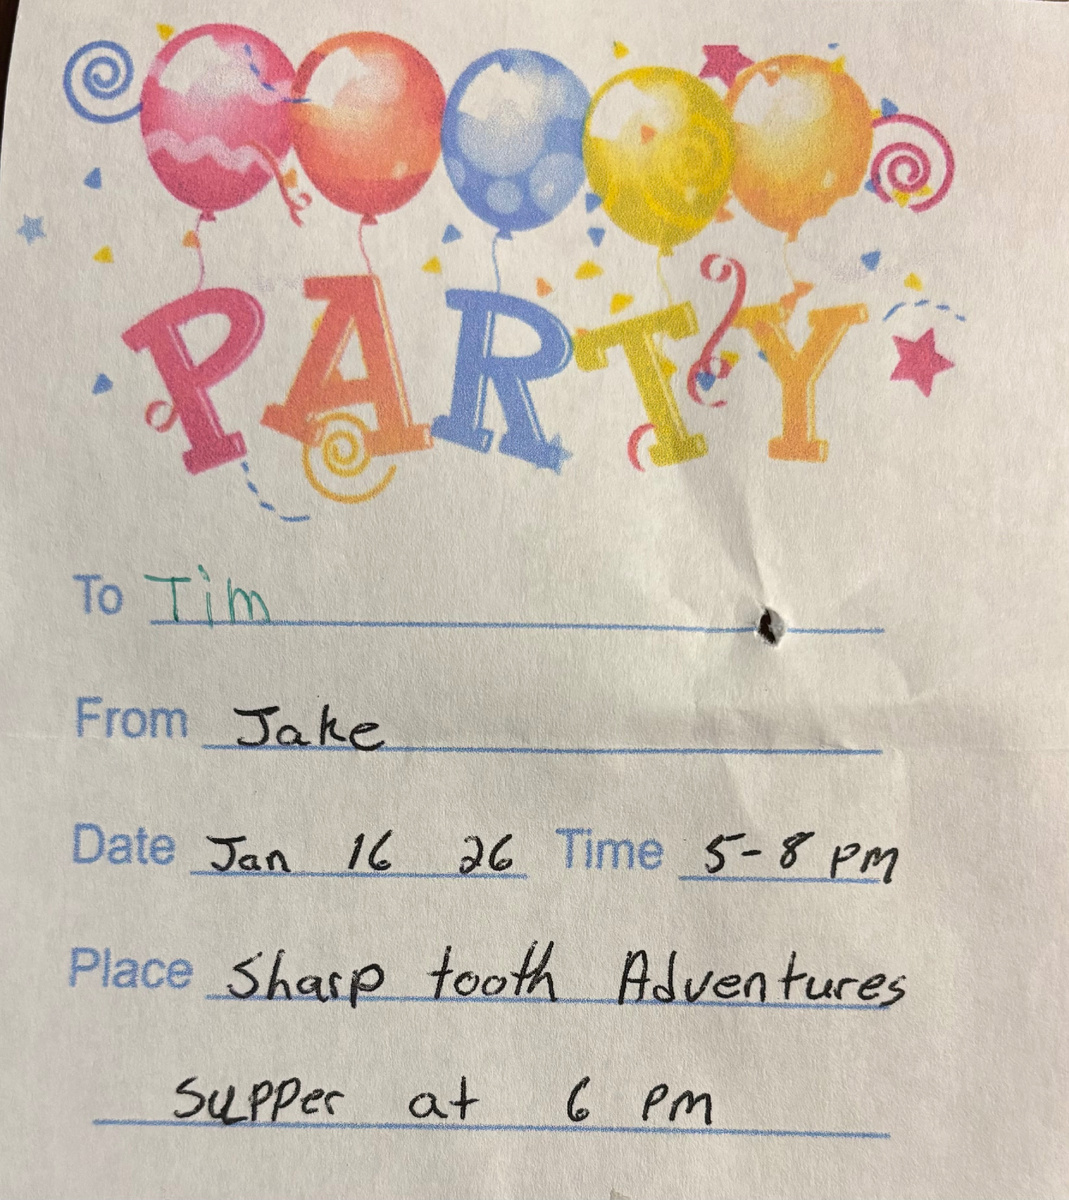 PARTY
To Tim
From Jake
Date Jan 16 26 Time 5-8 PM
Place Sharp tooth Adventures
Supper at 6 PM